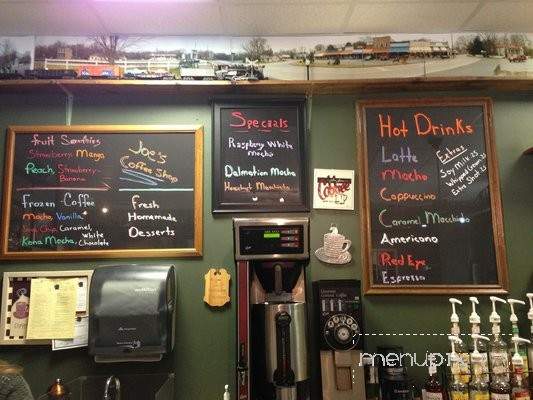 fruit Smoothies
Strawberry, Mango
Peach, Strawberry-
Banana
frozen - Coffee
Mocha, Vanilla,
Java Chip, Caramel, White
Kona Mocha, Chocolate
Joe's
Coffee Shop
fresh
Homemade
Desserts
Specials
Raspberry White
mocha
Dalmation Mocha
Hazelnut Macchiato
Hot Drinks
Latte
Mocha
Cappuccino
Caramel Macchiato
Americano
Red Eye
Espresso
Extras
Soy Milk .25
Whipped Cream .25
Extra Shot .25
Coffee
menup